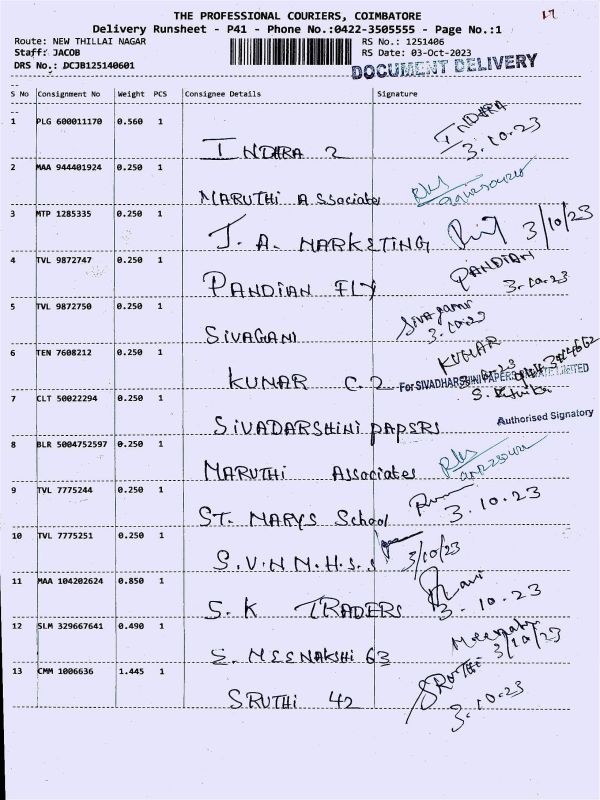 17
THE PROFESSIONAL COURIERS, COIMBATORE
Delivery Runsheet - P41 - Phone No.:0422-3505555 - Page No.:1
Route: NEW THILLAI NAGAR RS No.: 1251406
Staff: JACOB RS Date: 03-Oct-2023
DRS No.: DCJB125140601
DOCUMENT DELIVERY
S No Consignment No Weight PCS Consignee Details Signature
1 PLG 600011170 0.560 1
INDHRA 2 INDHRA 3.10.23
2 MAA 944401924 0.250 1
MARUTHI Associates
3 MTP 1285335 0.250 1
J. A. MARKETING 3/10/23
4 TVL 9872747 0.250 1
PANDIAN FLY PANDIAN 3.10.23
5 TVL 9872750 0.250 1
SIVAGANI Sivagami 3.10.23
6 TEN 7608212 0.250 1
KUNAR C.2 KUMAR
For SIVADHARSHINI PAPERS PRIVATE LIMITED
7 CLT 50022294 0.250 1
Authorised Signatory
SIVADARSHINI PAPSRS
8 BLR 5004752597 0.250 1
MARUTHI Associates
9 TVL 7775244 0.250 1
ST. MARYS School 3.10.23
10 TVL 7775251 0.250 1
S.V.N M.H.S.S 3/10/23
11 MAA 104202624 0.850 1
S.K TRADERS Ravi 3.10.23
12 SLM 329667641 0.490 1
S. MEENAKSHI 63 Meenakshi 3/10/23
13 CMM 1006636 1.445 1
SRUTHI 42 SRUTHI 3.10.23